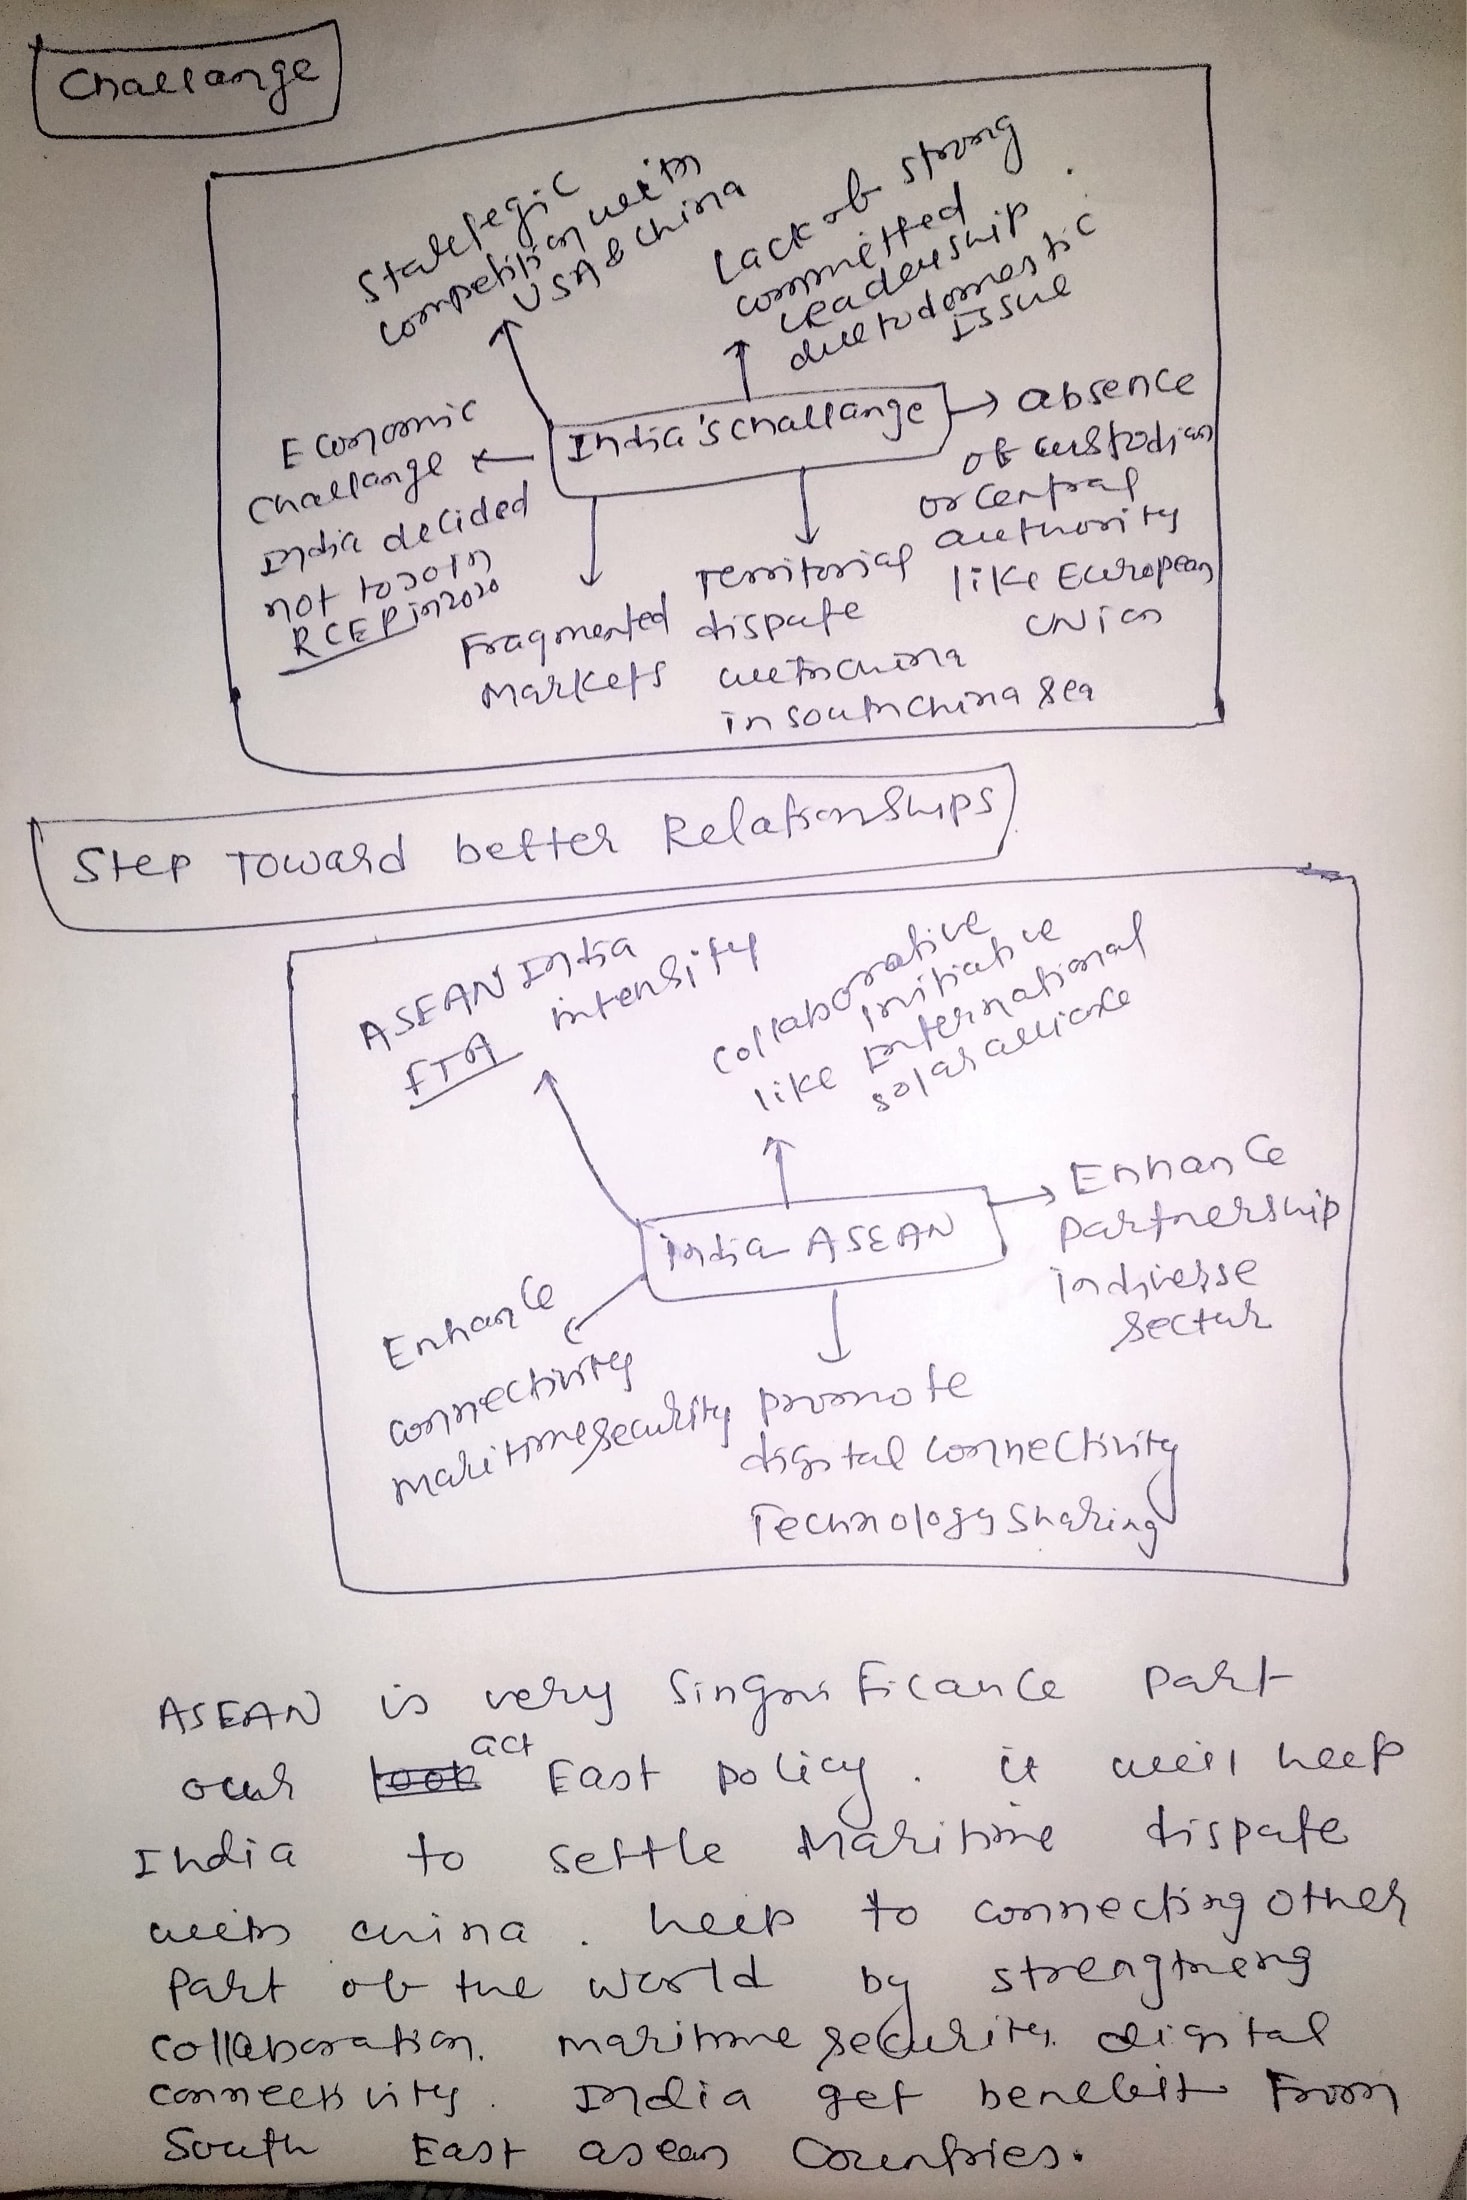 Challange
Stategic
competition with
USA & China
Lack of strong
committed
leadership
due to domestic
Issue
India's challange
Economic
Challange
India decided
not to join
RCEP in 2020
Fragmented
Markets
Territorial
dispute
with china
in south china sea
absence
of custodian
or central
authority
like European
UNion
Step Toward better Relationships
ASEAN India
FTA intensify
collaborative
initiative
like International
solar alliance
India ASEAN
Enhance
Partnership
in diverse
sector
Enhance
connectivity
maritime security
promote
digital connectivity
Technology sharing
ASEAN is very Singnificance part
our act East policy. it will help
India to settle Maritime dispute
with china. help to connecting other
part of the world by strengtheng
collaboration. maritime security. digital
connectivity. India get benefit from
South East asean Countries.